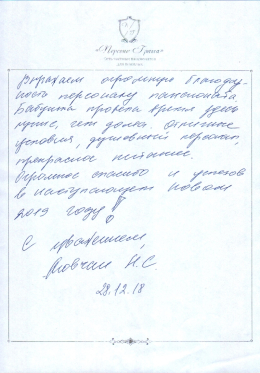 Выражаем огромную благодар-
ность персоналу пансионата
Бабушка провела время здесь
лучше, чем дома. Отличные
условия, душевный персонал
прекрасное питание.
Огромное спасибо и успехов
в наступающем Новом
2019 году!
С уважением,
Мовчан Н.С.
28.12.18